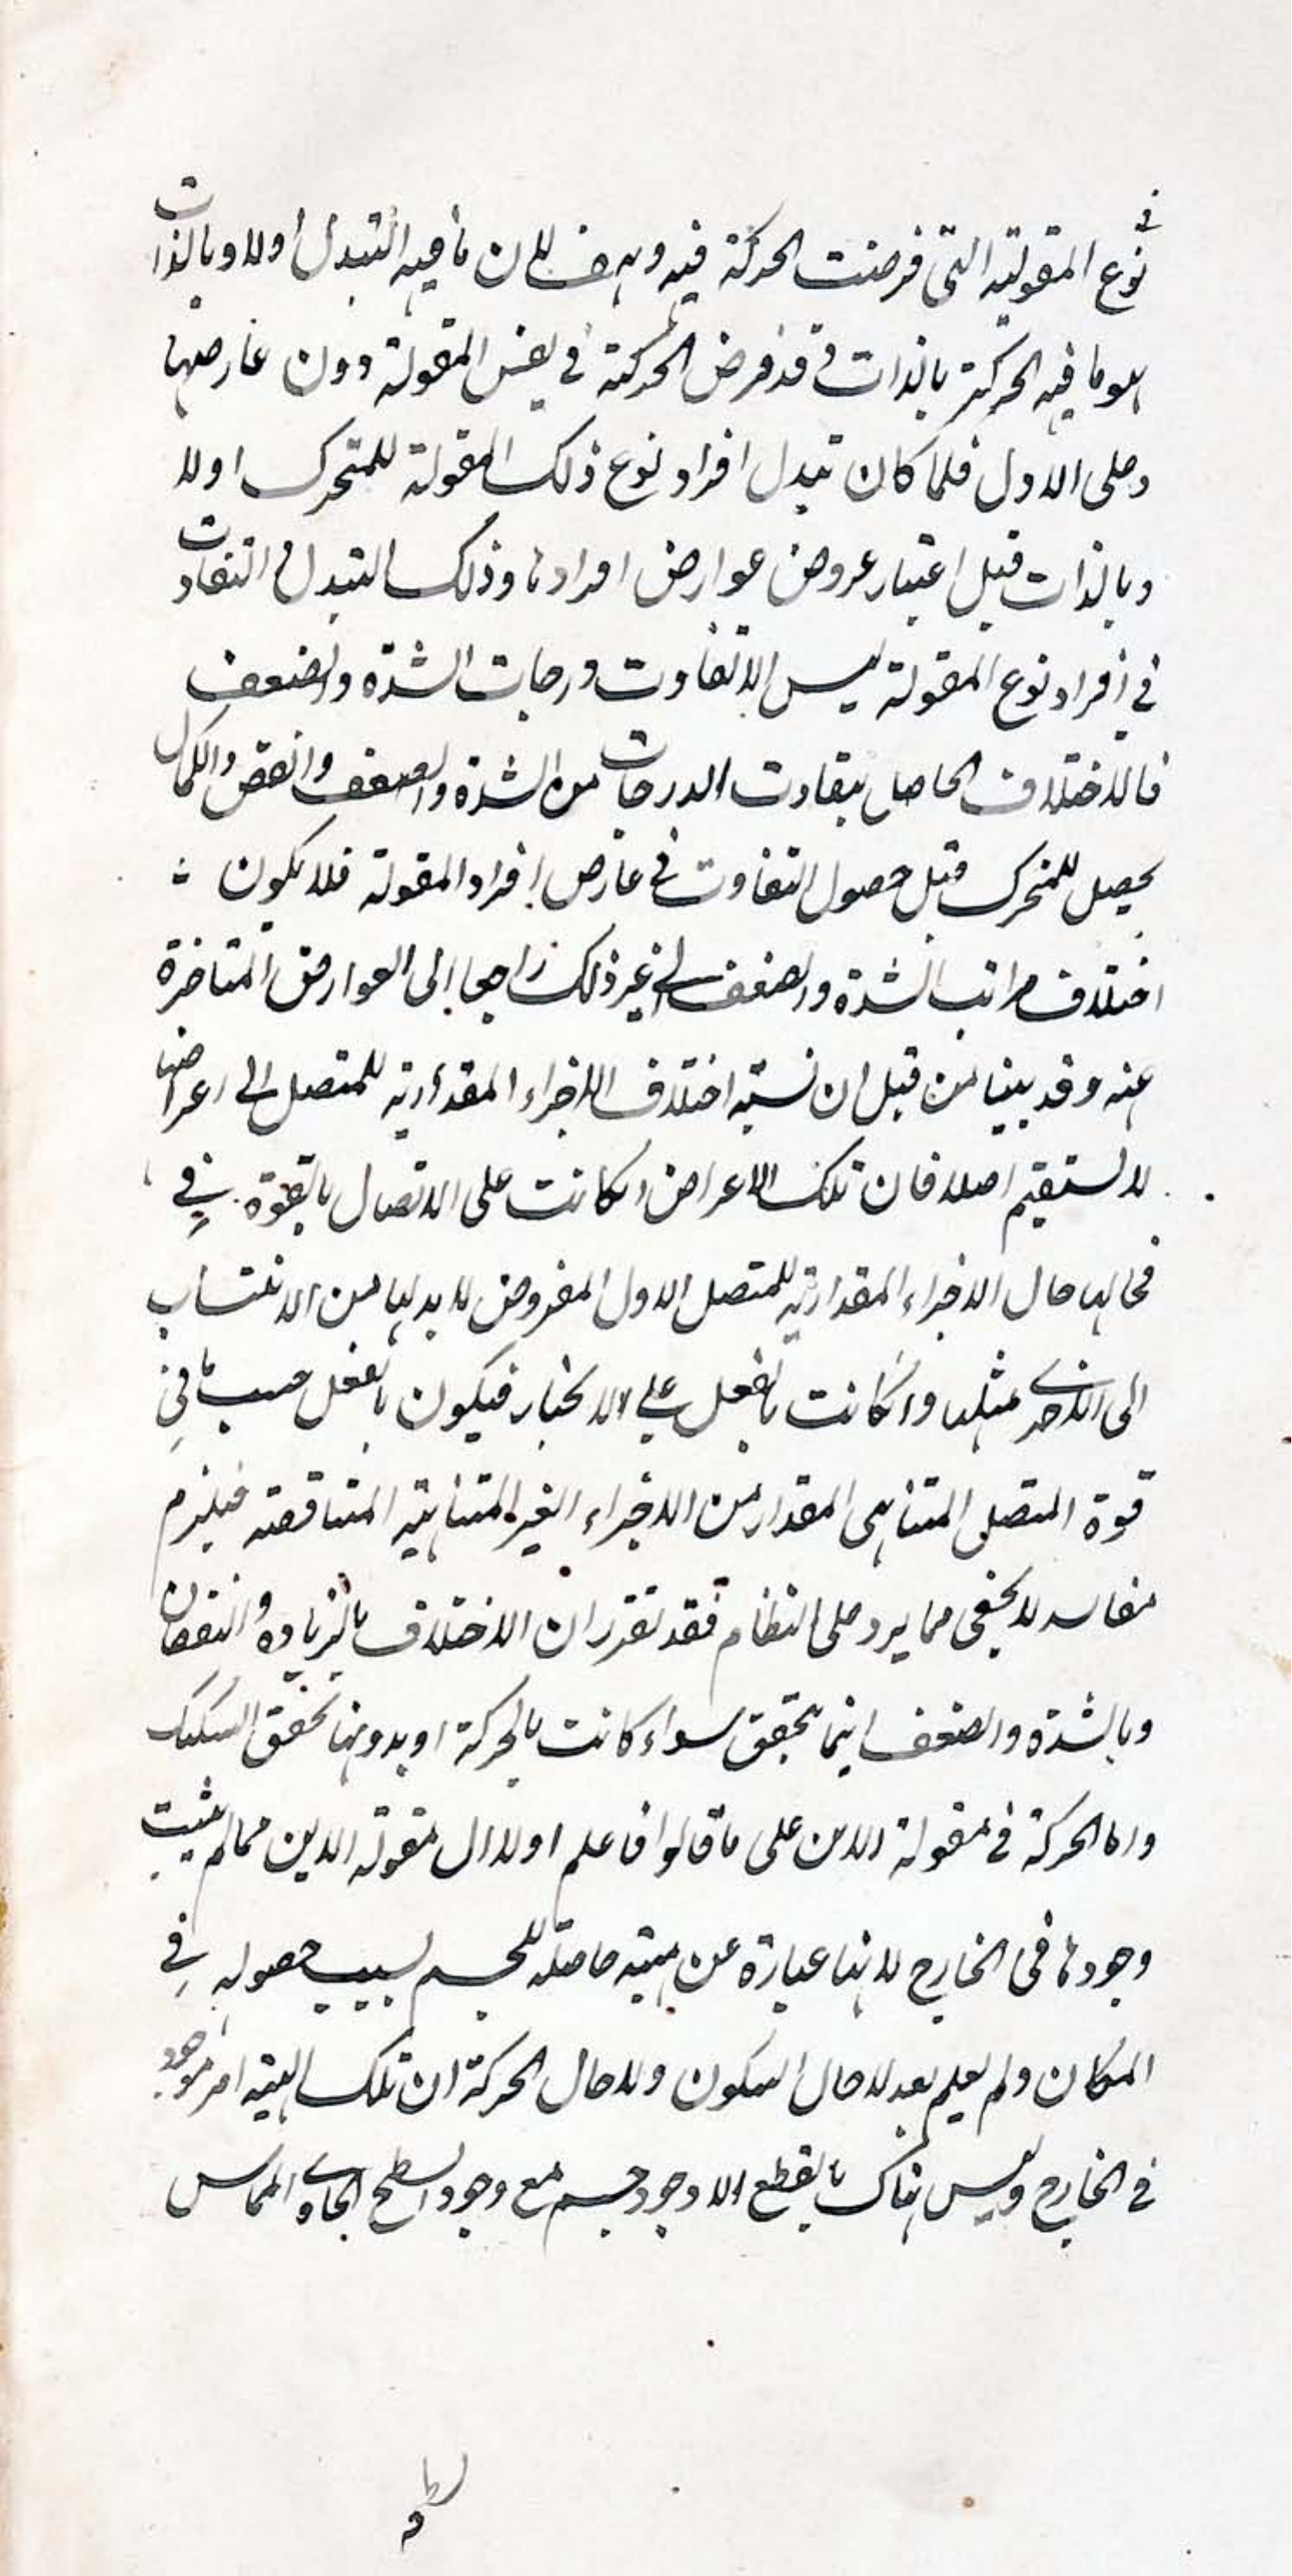 في نوع المقولية التي فرضت الحركة فيه وہف لان ما فيه التبدل اولا وبالذات
ہو ما فيه الحركة بالذات وقد فرض الحركة في نفس المقولة دون عارضها
وعلى الاول فلما كان تبدل افراد نوع ذلك المقولة للمتحرك اولا
وبالذات قبل اعتبار عروض عوارض افرادہا وذلك التبدل والتفاوت
في افراد نوع المقولة ليس الا تفاوت درجات الشدة والضعف
فالاختلاف الحاصل بتفاوت الدرجات من الشدة والضعف والنقص والكمال
يحصل للمتحرك قبل حصول التفاوت في عارض افراد المقولة فلا يكون
اختلاف مراتب الشدة والضعف الى غير ذلك راجعا الى العوارض المتاخرة
عنه وقد بينا من قبل ان نسبة اختلاف الاجزاء المقدارية للمتصل الى اعراضها
لا يستقيم اصلا فان تلك الاعراض ان كانت على الاتصال بالقوة في
فحالہا حال الاجزاء المقدارية للمتصل الاول المفروض لا بد لہا من الانتساب
الى الاخرى مثلہا وان كانت بالفعل على الانحياز فيكون بالفعل حسب ما في
قوة المتصل المتناہي المقدار من الاجزاء الغير المتناہية المتناقصة فيلزم
مفاسد لا يخفى مما يرد على النظام فقد تقرر ان الاختلاف بالزيادة والنقصان
وبالشدة والضعف اينما تحقق سواء كانت بالحركة او بدونہا تحقق التشكيك
واما الحركة في مقولة الاين على ما قالوا فاعلم اولا ان مقولة الاين مما لم يثبت
وجودہا في الخارج لانہا عبارة عن ہيئة حاصلة للجسم بسبب حصوله في
المكان ولم يعلم بعد لا حال السكون ولا حال الحركة ان تلك الہيئة امر موجود
في الخارج وليس ہناك بالقطع الا وجود جسم مع وجود السطح الحاوي المماس